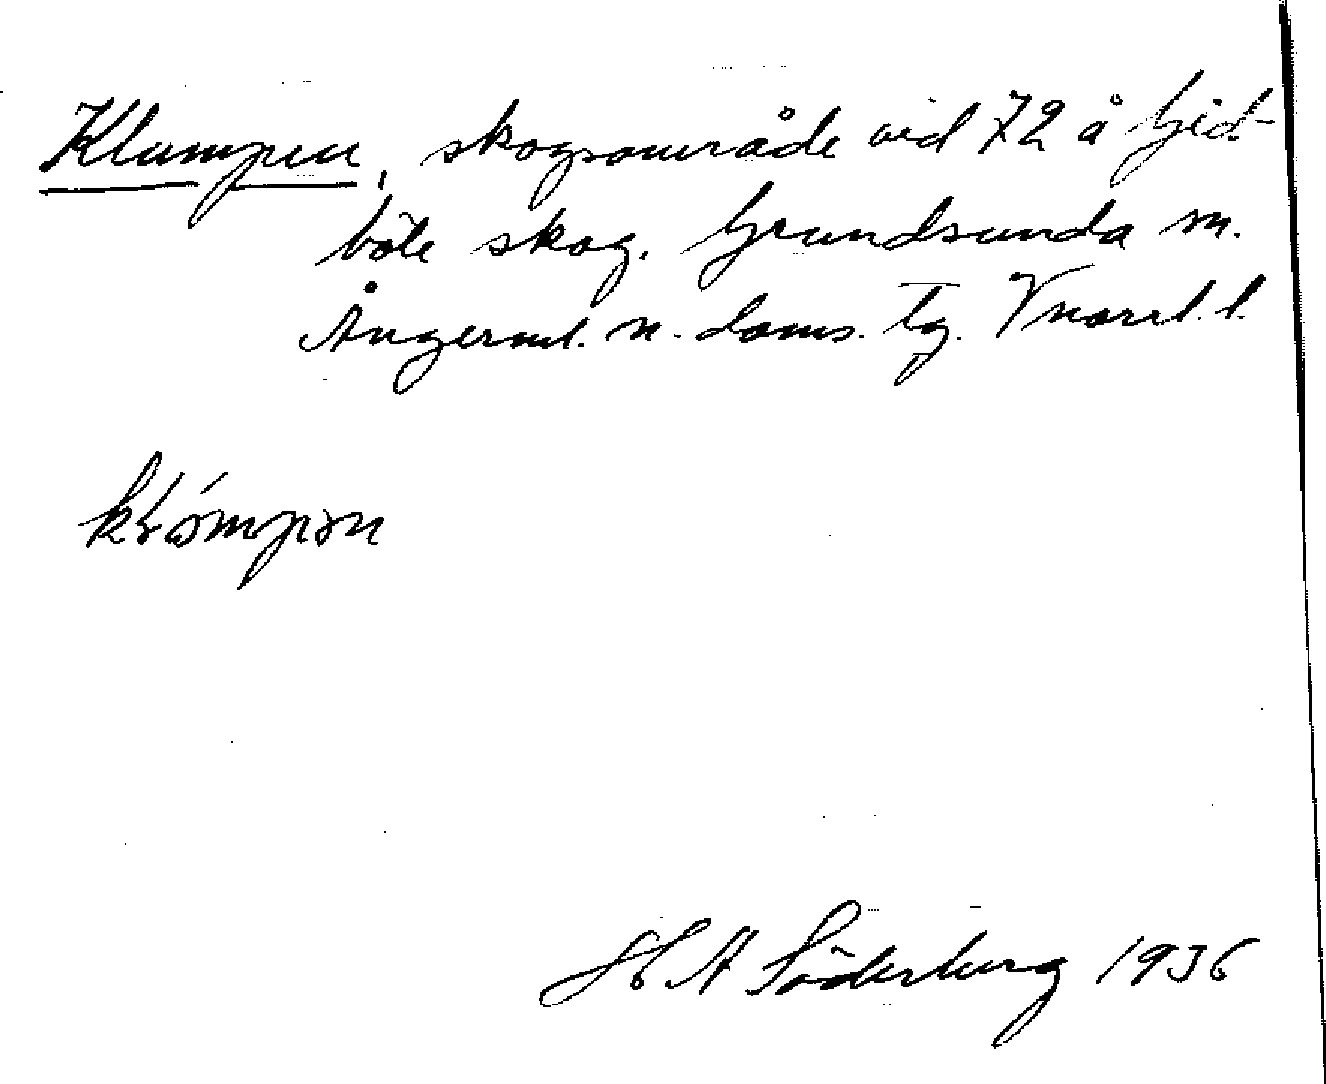 Klumpen, skogsområde vid 72 å Gid-
böle skog. Grundsunda sn.
Ångerml. n. doms. tg. Vnorrl. l.
H A Söderberg 1936